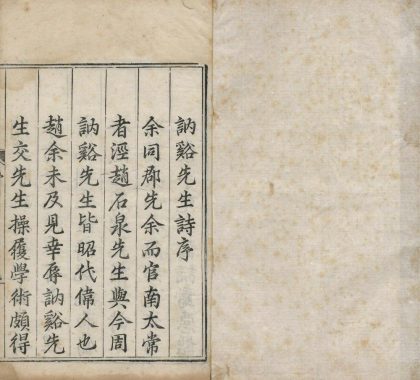 訥谿先生詩序
余同郡先余而官南太常
者涇趙石泉先生與今周
訥谿先生皆昭代偉人也
趙余未及見幸辱訥谿先
生交先生操履學術頗得